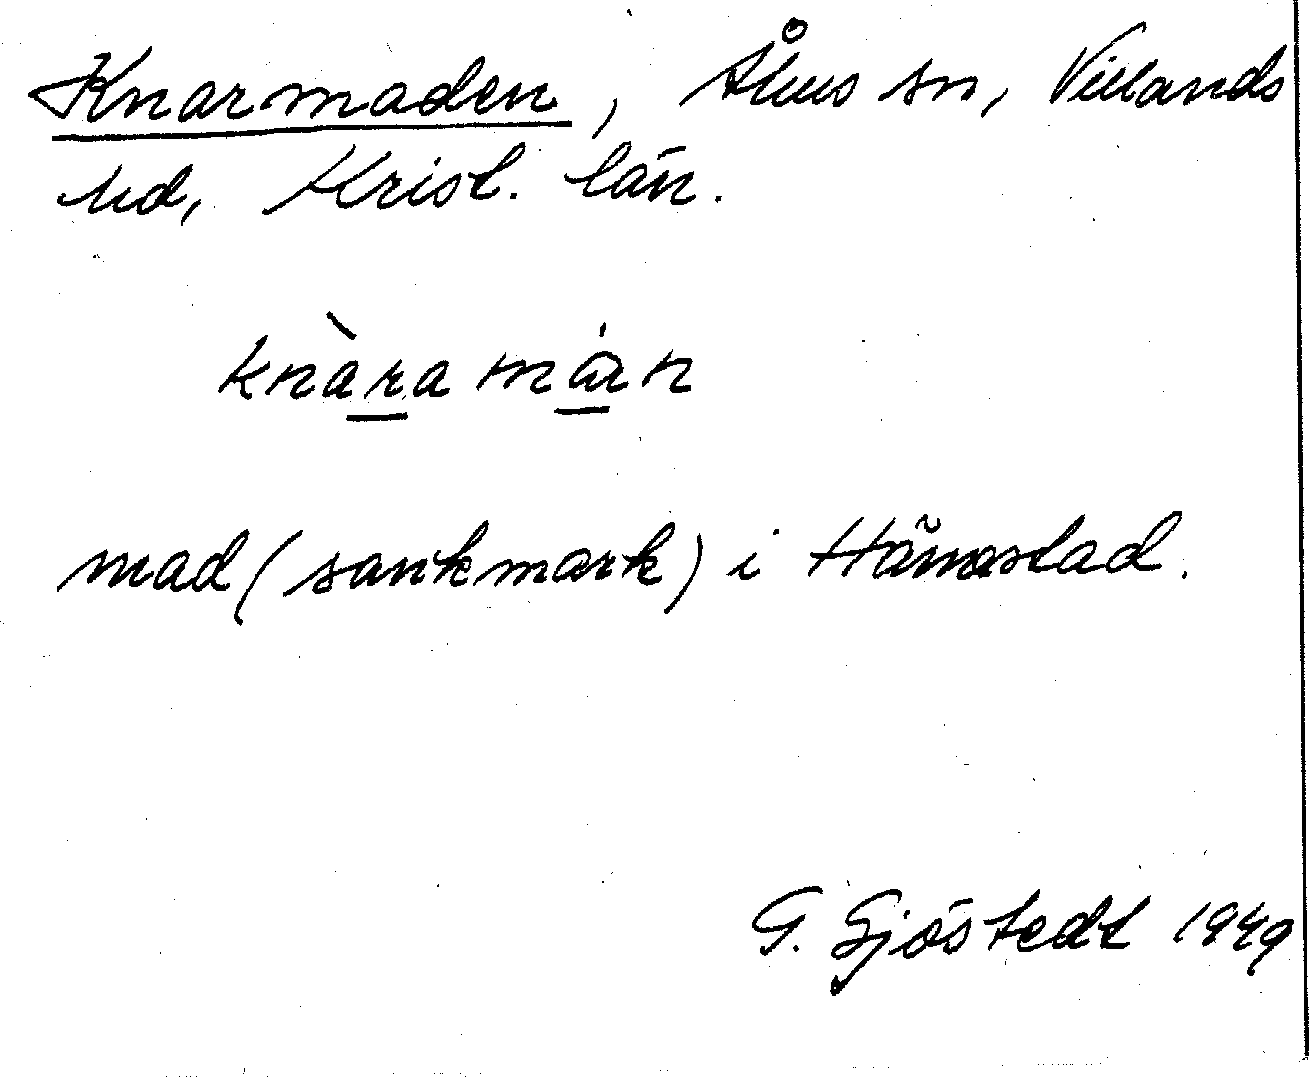 Knarmaden, Åhus sn, Villands
hd, Krist. län.
knàra mán
mad (sankmark) i Hämmastad.
G. Sjöstedt 1949